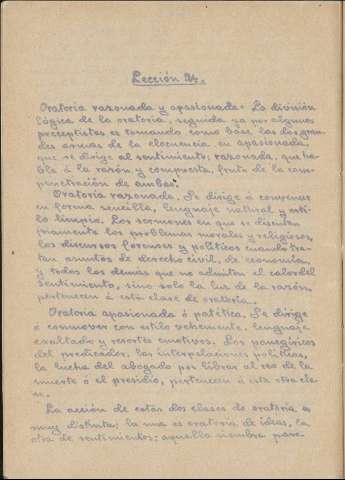 Lección 24.
Oratoria razonada y apasionada. La división
lógica de la oratoria, seguida ya por algunos
preceptistas es tomando como base las dos gran-
des armas de la elocuencia en apasionada,
que se dirige al sentimiento; razonada, que ha-
bla á la razón y compuesta, fruto de la com-
penetración de ambas.
Oratoria razonada. Se dirige á convencer
en forma sencilla, lenguaje natural y esti-
lo limpio. Los sermones en que se discuten
los problemas morales y religiosos,
los discursos forenses y políticos cuando tra-
tan asuntos de derecho civil, de economía
y todos los demás que no admiten el calor del
sentimiento, sino solo la luz de la razón
pertenecen á esta clase de oratoria.
Oratoria apasionada ó patética. Se dirige
á conmover con estilo vehemente, lenguaje
exaltado y resortes emotivos. Los panegíricos
del predicador, las interpelaciones políticas,
la lucha del abogado por librar al reo de la
muerte ó el presidio, pertenecen á esta otra cla-
se.
La acción de estas dos clases de oratoria es
muy distinta; la una es oratoria de ideas, la
otra de sentimientos; aquella siembra para